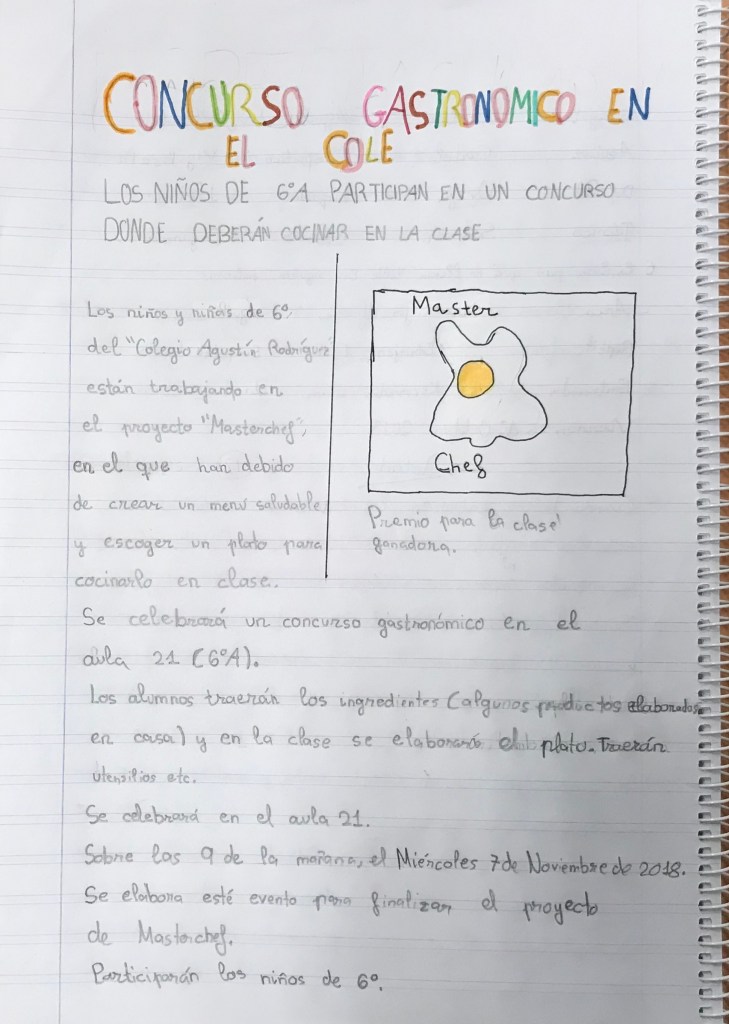 CONCURSO GASTRONOMICO EN
EL COLE
LOS NIÑOS DE 6ºA PARTICIPAN EN UN CONCURSO
DONDE DEBERÁN COCINAR EN LA CLASE
Los niños y niñas de 6º
del "Colegio Agustín Rodríguez
están trabajando en
el proyecto "Masterchef",
en el que han debido
de crear un menú saludable
y escoger un plato para
cocinarlo en clase.
Master
Chef
Premio para la clase
ganadora.
Se celebrará un concurso gastronómico en el
aula 21 (6ºA).
Los alumnos traerán los ingredientes (algunos productos elaborados
en casa) y en la clase se elaborará el plato. Traerán
utensilios etc.
Se celebrará en el aula 21.
Sobre las 9 de la mañana, el Miércoles 7 de Noviembre de 2018.
Se elabora esté evento para finalizar el proyecto
de Masterchef.
Participarán los niños de 6º.